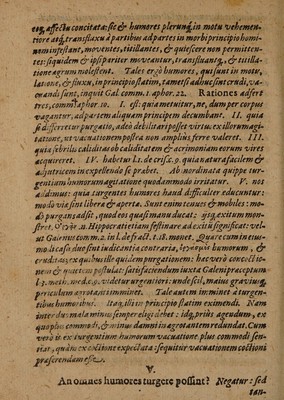 eoq, affectu concitatæ: sic & humores plerunq; in motu vehemen-
tiore atq; transfluxu à partibus ad partes in morbi principio homi-
nem infestant, moventes, titillantes, & quiescere non permitten-
tes: siquidem & ipsi pariter moveantur, transfluantq;, & titilla-
tione ægrum molestent. Tales ergo humores, qui sunt in motu,
latione, & fluxu, in principio statim, tametsi adhuc sint crudi, va-
crandi sunt, inquit Gal. comm. 1. aphor. 22. Rationes adfert
tres, comm. aphor. 10. I. est: quia metuitur, ne, dum per corpus
vagantur, ad partem aliquam principem decumbant. II. quia
si differretur purgatio, adeo debilitari posset virtus ex illorum agi-
tatione, ut vacuationem postea non amplius ferre valeret. III.
quia febrilis caliditas ob caliditatem & acrimoniam eorum vires
acquireret. IV. habetur l. 1. de cris. c. 9. quia natura facilem &
adjutricem in expellendo se præbet. Ab inordinata quippe tur-
gentium immorum agitatione quodammodo irritatur. V. nos
addimus: quia turgentes humores haud difficulter educuntur:
modo viæ sint liberæ & apertæ. Sunt enim tenues & mobiles: mo-
dò purgans adsit, quod eos quasi manu ducat: ijsq, exitum mon-
stret. Ὀργᾶν Hippocrati etiam festinare ad exitū significat: vti-
at Gavinus comm. 2. in l. de fract. t. 18. monet. Quare cum in eu-
mdē casu duæ sint indicantia contraria, levquis humorum, &
cruditas: ex quibus ille quidem purgationem: hæc verò coctio-
nem & quietem postulat: satisfaciendum iuxta Galeni præceptum
l. 7. meth. med. c. 9. videtur urgentiori: unde scil. maius gravius q;
periculum ægrotanti immineat. Tale autem imminet à turgen-
tibus humoribus. Itaq; illi in principio statim eximendi. Nam
inter duo mala minus semper eligi debet: idq, prius agendum, ex
quo plus commodi, & minus damni in ægrotantem redundat. Cum
verò in ex turgentium humorum vacuatione plus commodi sen-
tiat, quàm ex coctione expectata: sequitur vacuationem coctioni
præferendam esse.
V.
An omnes humores turgere possint? Negatur: sed
tan-